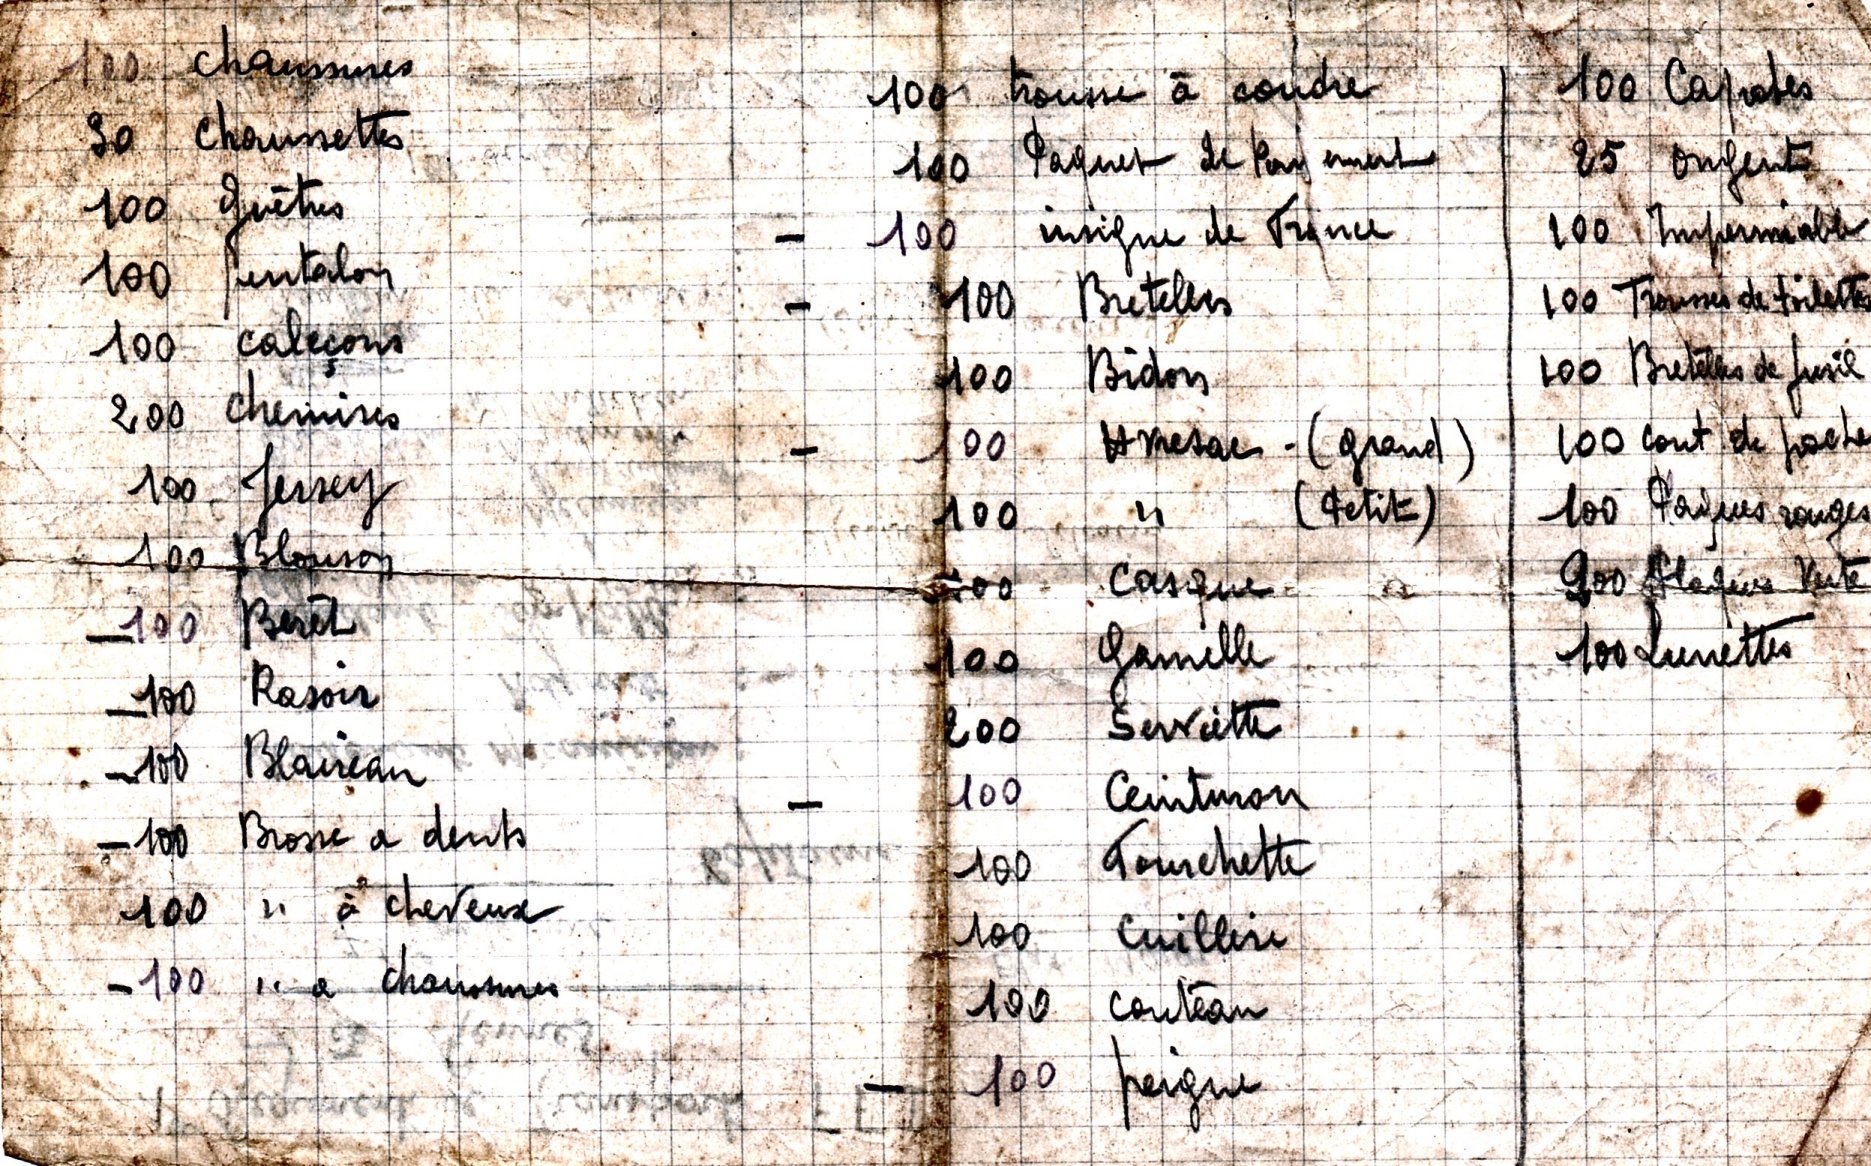 100 chaussures
30 chaussettes
100 guêtres
100 pantalon
100 caleçons
200 chemises
100 Jersey
100 Blouson
100 Beret
100 Rasoir
100 Blaireau
100 Brosse a dents
100 " à cheveux
100 " a chaussures
100 trousse à coudre
100 Paquet de
100 insigne de France
100 Bretelles
100 Bidons
100 (grand)
100 " (Petit)
100 Casque
100 Gamelle
200 Serviette
100 Ceinturon
100 Fourchette
100 Cuillère
100 couteau
100 peigne
100 Capotes
25 onguent
100 Imperméable
100 Trousses de toilettes
100 Bretelles de fusil
100 cout de poche
100 rouges
200
100 Lunettes